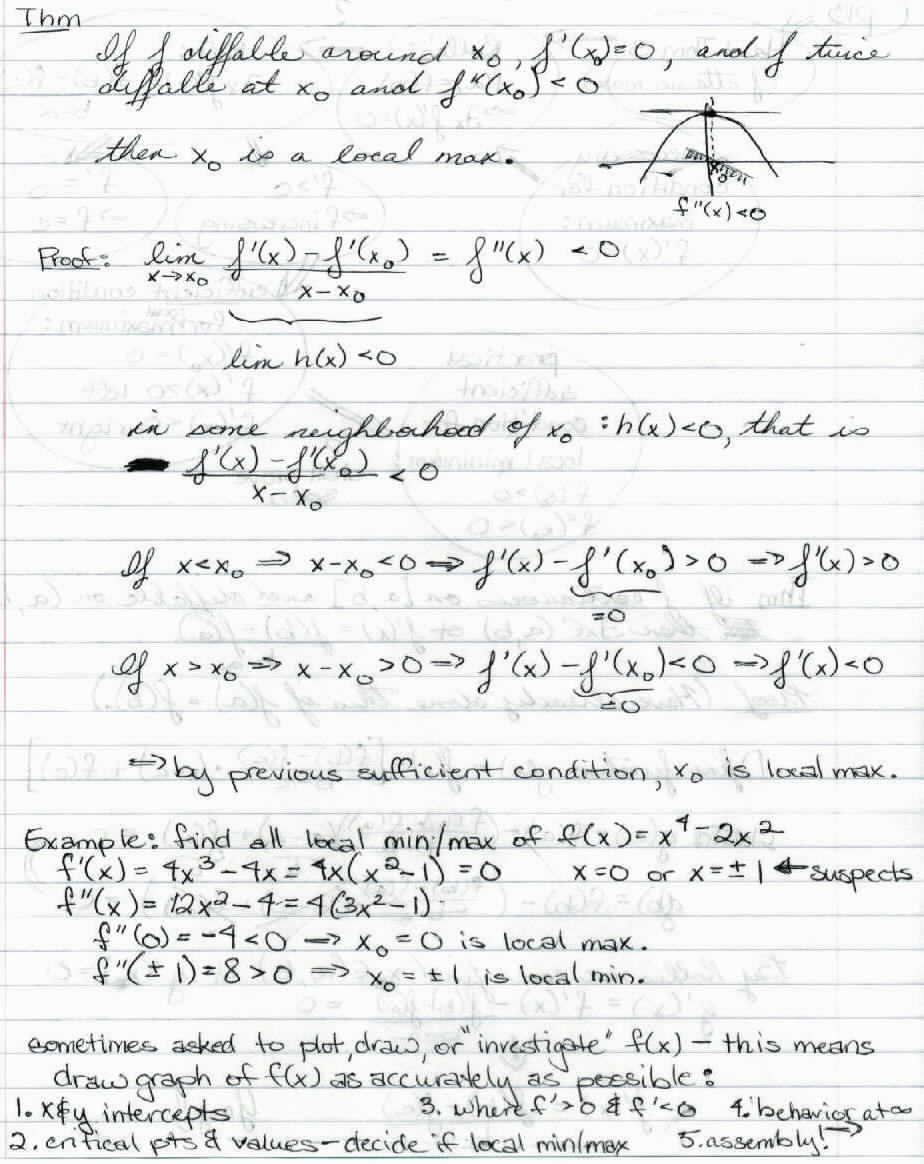 Thm
If f diffable around x₀, f'(x₀)=0, and f twice
diffable at x₀ and f"(x₀) < 0
then x₀ is a local max.
x₀
f"(x)<0
Proof: lim x→x₀ (f'(x) - f'(x₀))/(x-x₀) = f"(x) < 0
lim h(x) <0
in some neighborhood of x₀ : h(x)<0, that is
(f'(x) - f'(x₀))/(x-x₀) < 0
If x<x₀ ⇒ x-x₀<0 ⇒ f'(x) - f'(x₀) > 0 ⇒ f'(x) > 0
=0
If x > x₀ ⇒ x-x₀ >0 ⇒ f'(x) - f'(x₀) <0 ⇒ f'(x) <0
=0
⇒ by previous sufficient condition, x₀ is local max.
Example: find all local min/max of f(x)= x⁴-2x²
f'(x) = 4x³-4x = 4x(x²-1) = 0 x=0 or x=±1 ← suspects
f"(x) = 12x²-4 = 4(3x²-1)
f"(0) = -4<0 ⇒ x₀ = 0 is local max.
f"(±1) = 8 > 0 ⇒ x₀ = ±1 is local min.
sometimes asked to plot, draw, or "investigate" f(x) - this means
draw graph of f(x) as accurately as possible:
1. x&y intercepts 3. where f'>0 & f'<0 4. behavior at ∞
2. critical pts & values - decide if local min/max 5. assembly! →